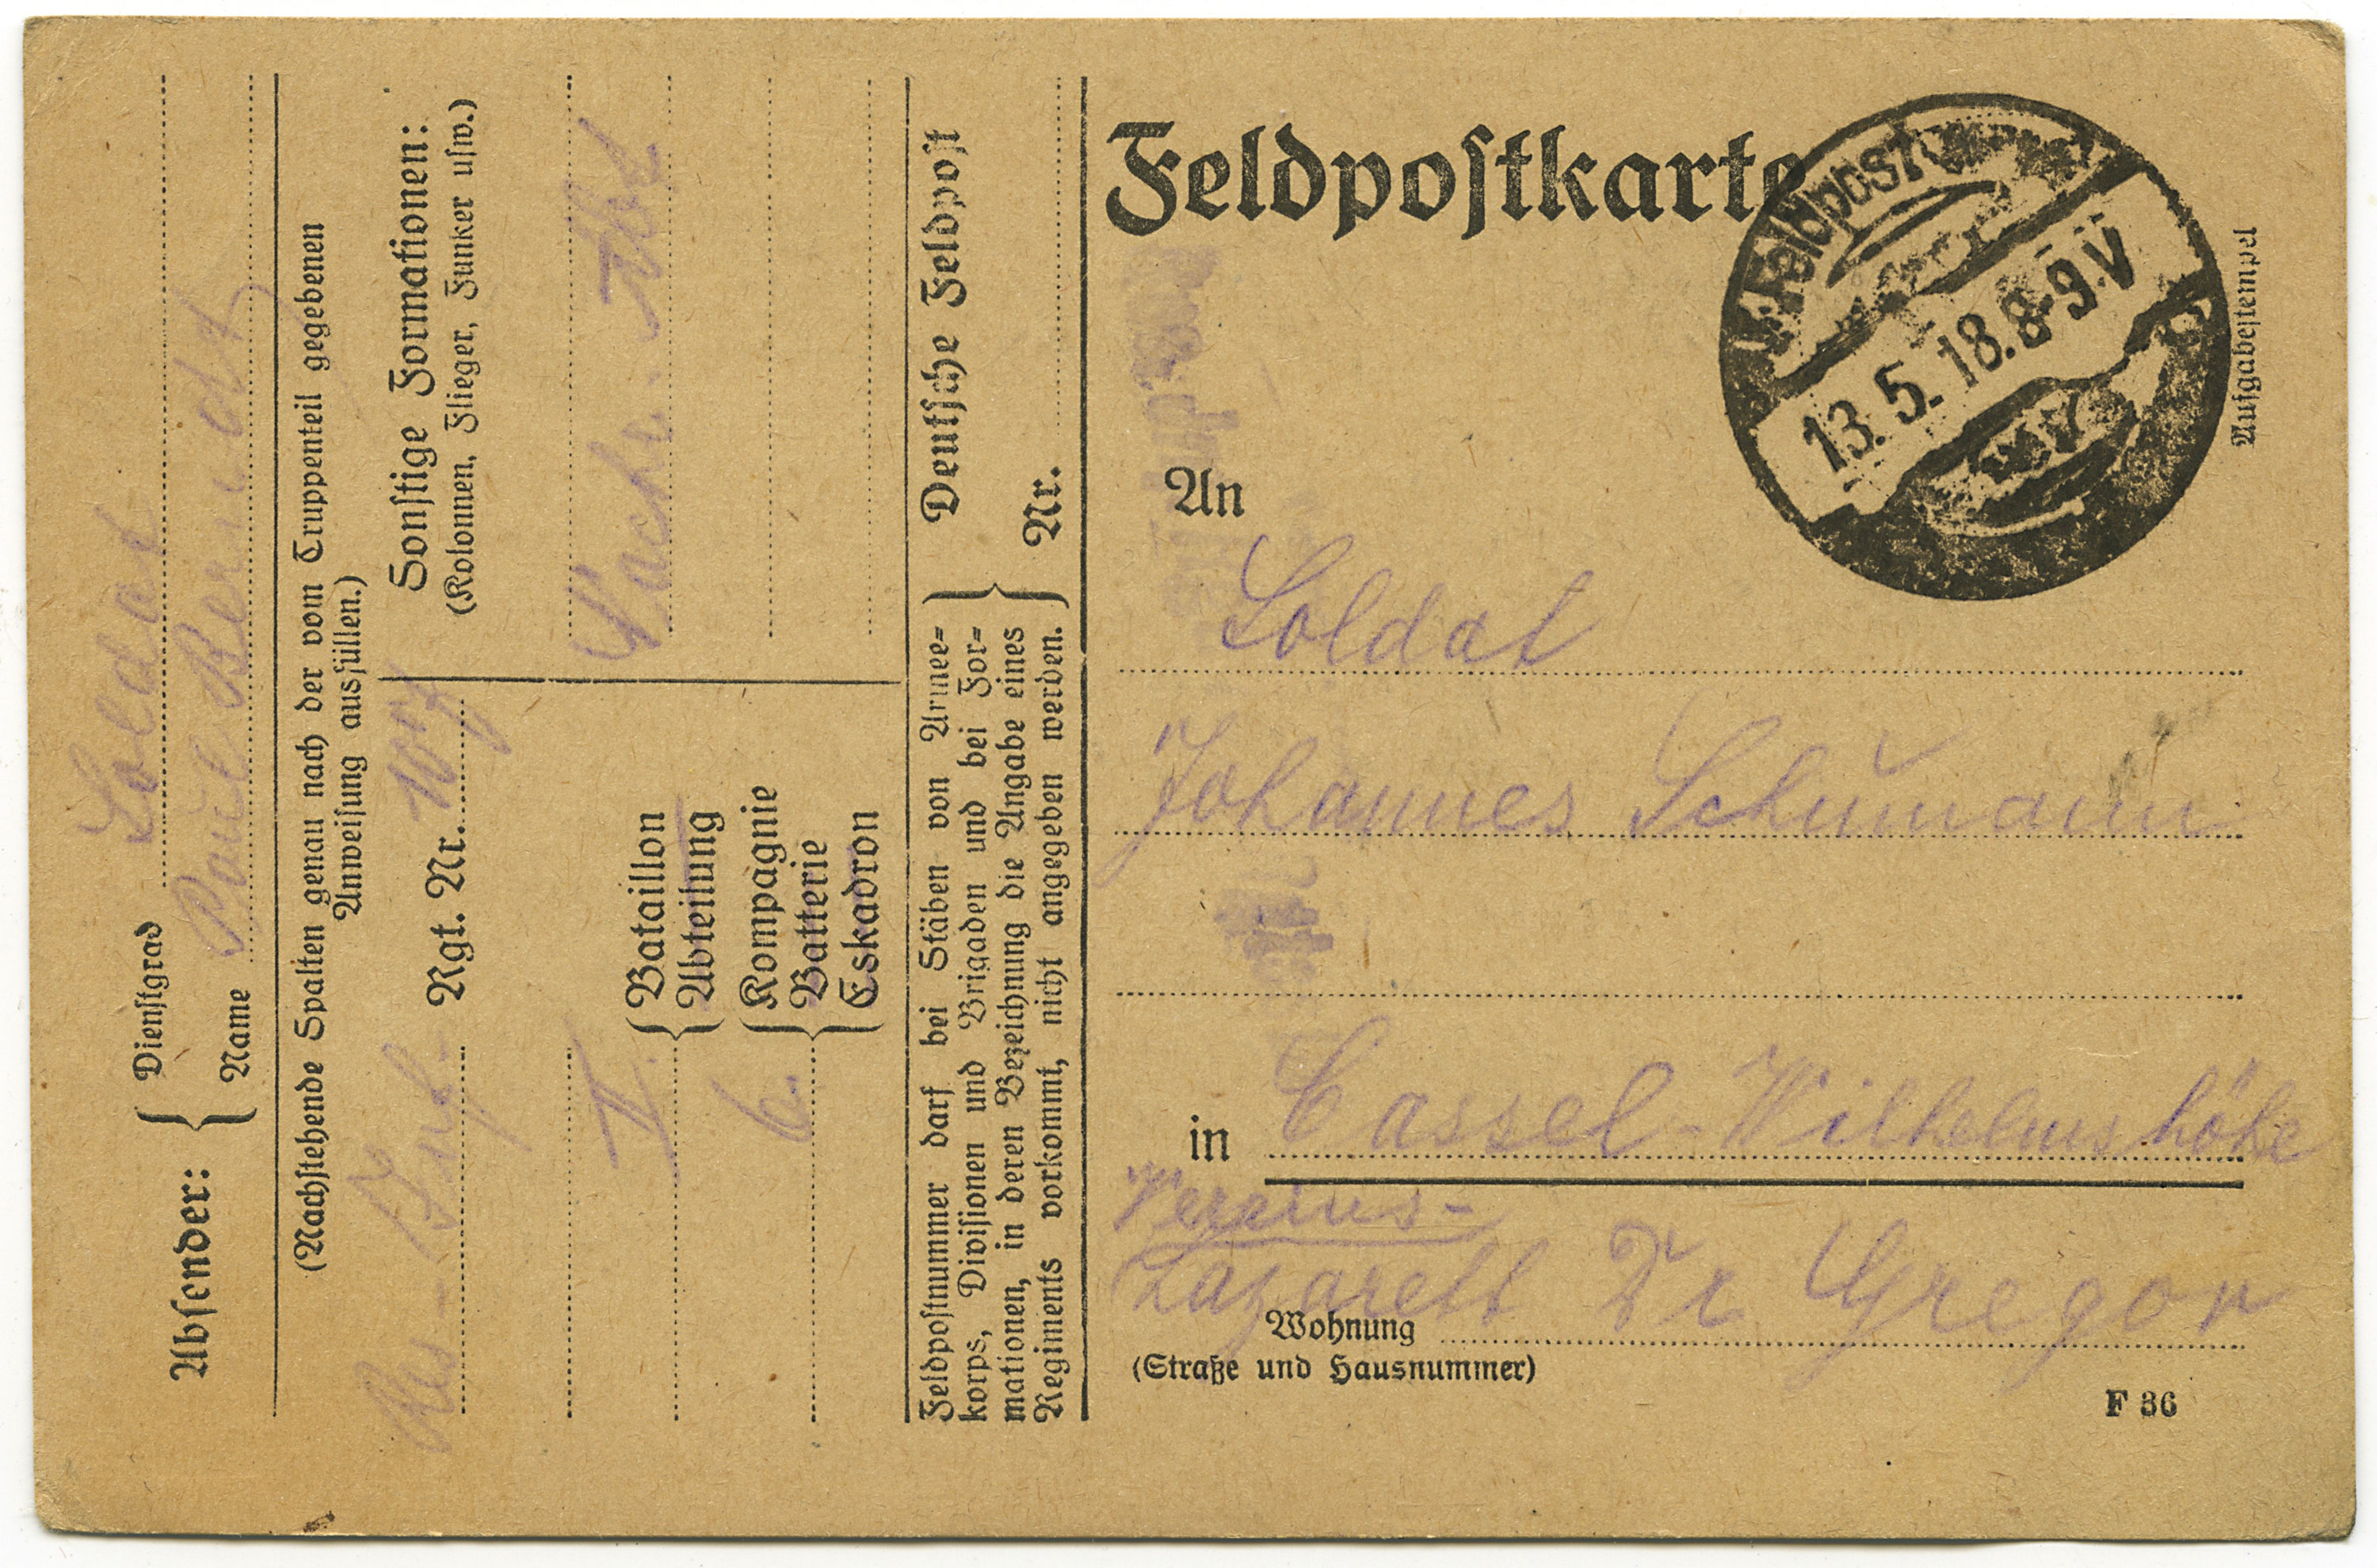 Absender:
Dienstgrad Soldat
Name Paul
(Nachstehende Spalten genau nach der vom Truppenteil gegebenen
Anweisung ausfüllen.)
Res-Inf- Rgt. Nr. 107
II. Bataillon
Abteilung
6. Kompagnie
Batterie
Eskadron
Sonstige Formationen:
(Kolonnen, Flieger, Funker usw.)
Nachr. Abt
Feldpostnummer darf bei Stäben von Armee=
korps, Divisionen und Brigaden und bei For=
mationen, in deren Bezeichnung die Angabe eines
Regiments vorkommt, nicht angegeben werden.
Deutsche Feldpost
Nr.
Feldpostkarte
Feldpost
13.5.18.8-9.V
Aufgabestempel
An
Soldat
Johannes Schumann
in Cassel-Wilhelmshöhe
Vereins-
Lazarett Dr Gregor
Wohnung
(Straße und Hausnummer)
F 36